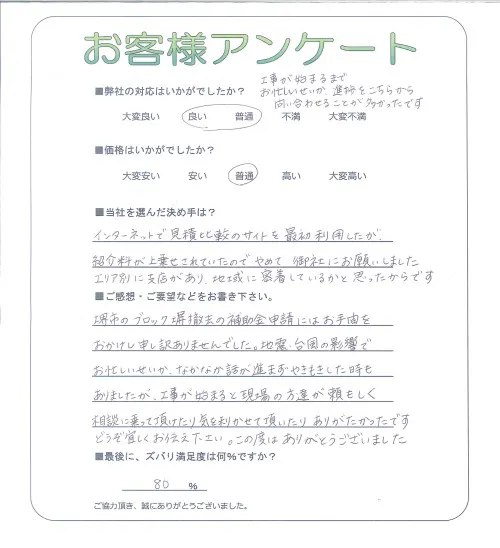 お客様アンケート
■弊社の対応はいかがでしたか？
工事が始まるまで
お忙しいせいか 進捗をこちらから
問い合わせることが多かったです
大変良い 良い 普通 不満 大変不満
■価格はいかがでしたか？
大変安い 安い 普通 高い 大変高い
■当社を選んだ決め手は？
インターネットで見積比較のサイトを最初利用したが、
紹介料が上乗せされていたのでやめて 御社にお願いしました
エリア別に支店があり、地域に密着しているかと思ったからです
■ご感想・ご要望などをお書き下さい。
堺市のブロック塀撤去の補助金申請にはお手間を
おかけし申し訳ありませんでした。地震、台風の影響で
お忙しいせいか、なかなか話が進まずやきもきした時も
ありましたが、工事が始まると現場の方達が頼もしく
相談に乗って頂けたり気を利かせて頂いたり ありがたかったです
どうぞ宜しくお伝え下さい。この度はありがとうございました
■最後に、ズバリ満足度は何％ですか？
80 ％
ご協力頂き、誠にありがとうございました。